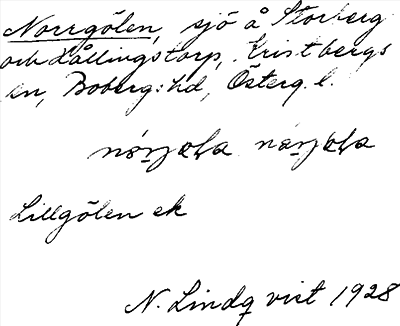 Norrgölen, sjö å Storberg
och Hållingstorp, Kristbergs
sn, Boberg:hd, Österg. l.
Lillgölen ek
N. Lindqvist 1928